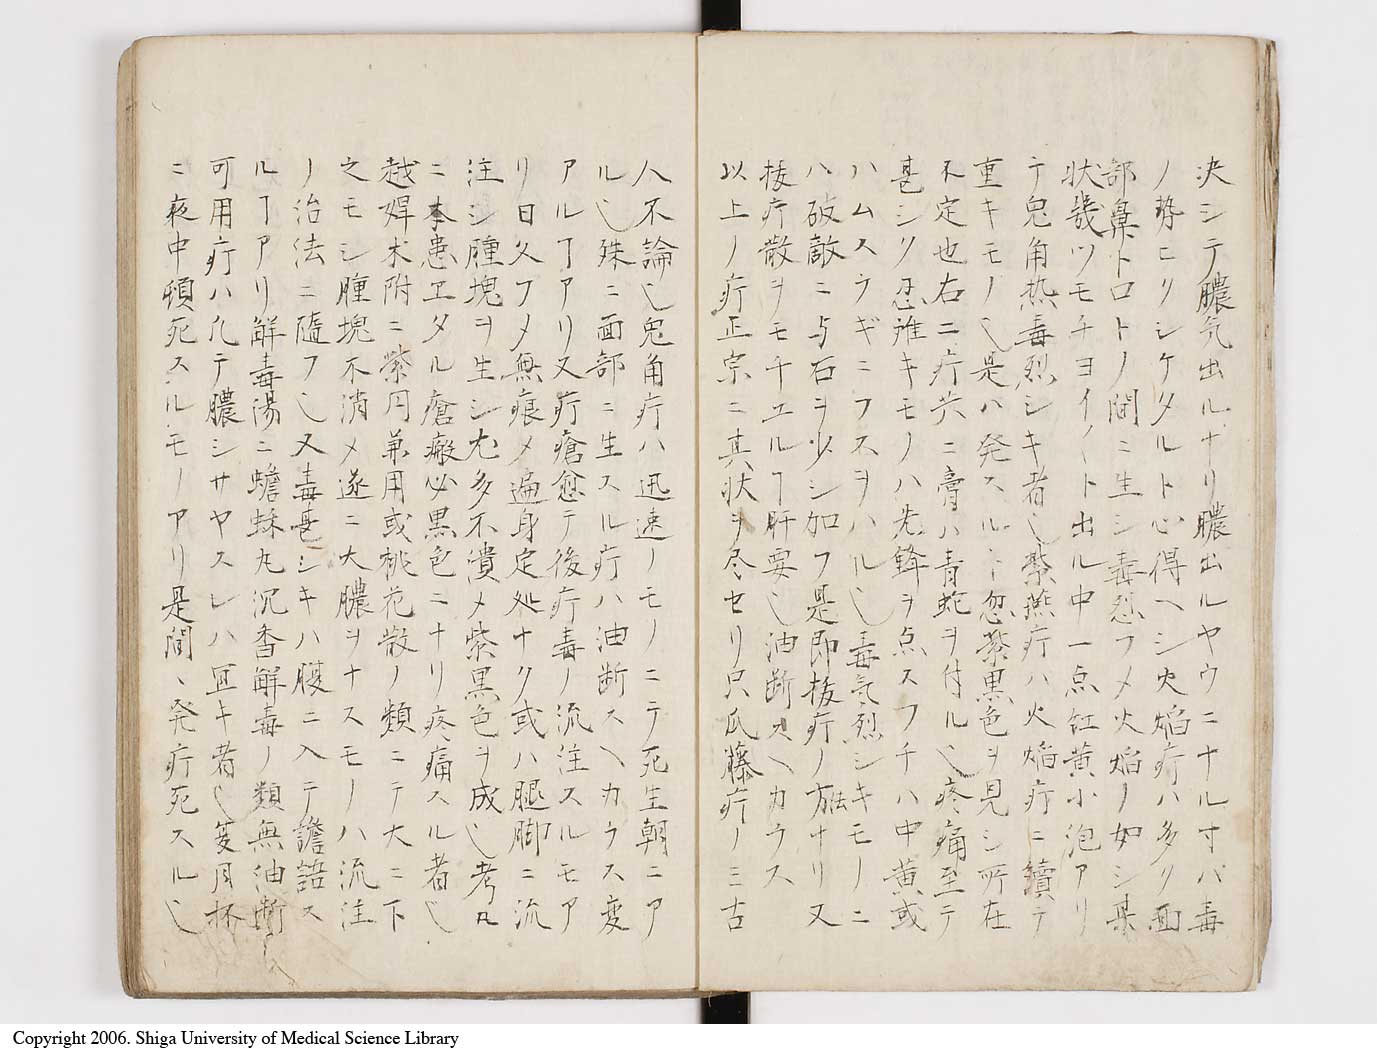 決シテ膿気出ルナリ膿出ルヤウニナルオバ毒
ノ勢ニリシケタルト心得ヘシ火焔疔ハ多クハ面
部鼻ト口トノ間ニ生シ毒烈フメ火焔ノ如シ其
状幾ツモチヨイ〱ト出ル中一点紅黄小泡アリ
テ兎角热毒烈シキ者也紫燕疔ハ火焔疔ニ續テ
重キモノ也是ハ発スルト忽紫黒色ヲ見シ所在
不定也右ニ疔共ニ膏ハ青蛇ヲ付ル也疼痛至テ
甚シク忍難キモノハ先鋒ヲ点スフチハ中黄或
ハムスラギニフスヲハル也毒気烈シキモノニ
ハ破敵ニ与石ヲ少シ加フ是即抜疔ノ方法ナリ又
抜疔散ヲモチエルヿ肝要也油断スヘカラス
以上ノ疔正宗ニ其状ヲ尽セリ只爪藤疔ノミ古
人不論也兎角疔ハ迅速ノモノニテ死生朝ニア
ル也殊ニ面部ニ生スル疔ハ油断スヘカラス変
アルヿアリ又疔瘡愈テ後疔毒ノ流注スルモア
リ日久フメ無痕メ遍身定処ナク或ハ腿脚ニ流
注シ腫塊ヲ生シ尤多不潰メ紫黒色ヲ成也考ル
ニ本患エタル瘡瘢必黒色ニナリ疼痛スル者也
越婢朮附ニ紫円兼用或桃花散ノ類ニテ大ニ下
之モシ腫塊不消メ遂ニ大膿ヲナスモノハ流注
ノ治法ニ隨フ也又毒甚シキハ腹ニ入テ譫語ス
ルヿアリ解毒湯ニ蟾蘇丸沉香解毒ノ類無油断
可用疔ハ凡テ膿シサヤスレハ宜キ者也夏月杯
ニ夜中頓死スルモノアリ是間、発疔死スル也
Copyright 2006. Shiga University of Medical Science Library